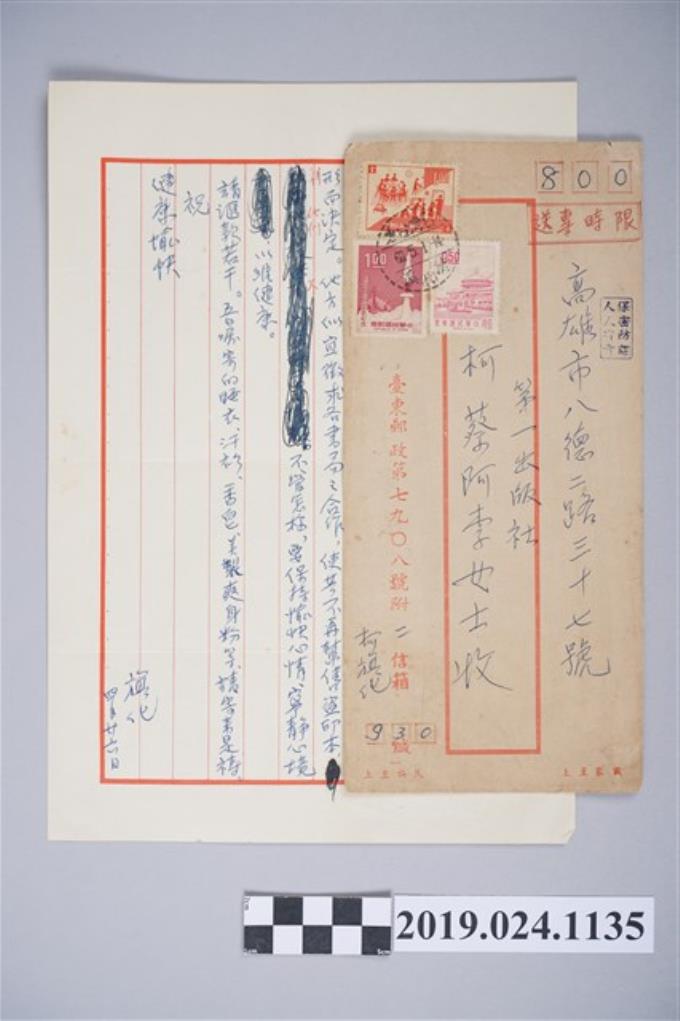 800
限時專送
保密防諜
人人有責
高雄市八德二路三十七號
第一出版社
柯蔡阿李女士收
臺東郵政第七九〇八號附二信箱
柯旗化
930
號
1.00
形而決定。地方似宜徵求各書局之合作，使其不再幫售盜印本，
不管怎樣，要保持愉快心情、寧靜心境
以維健康。
請滙款若干。吾囑寄的睡衣、汗衫、香皂、美製爽身粉等，請寄來是禱。
祝
健康愉快
旗化
四月廿六日
2019.024.1135